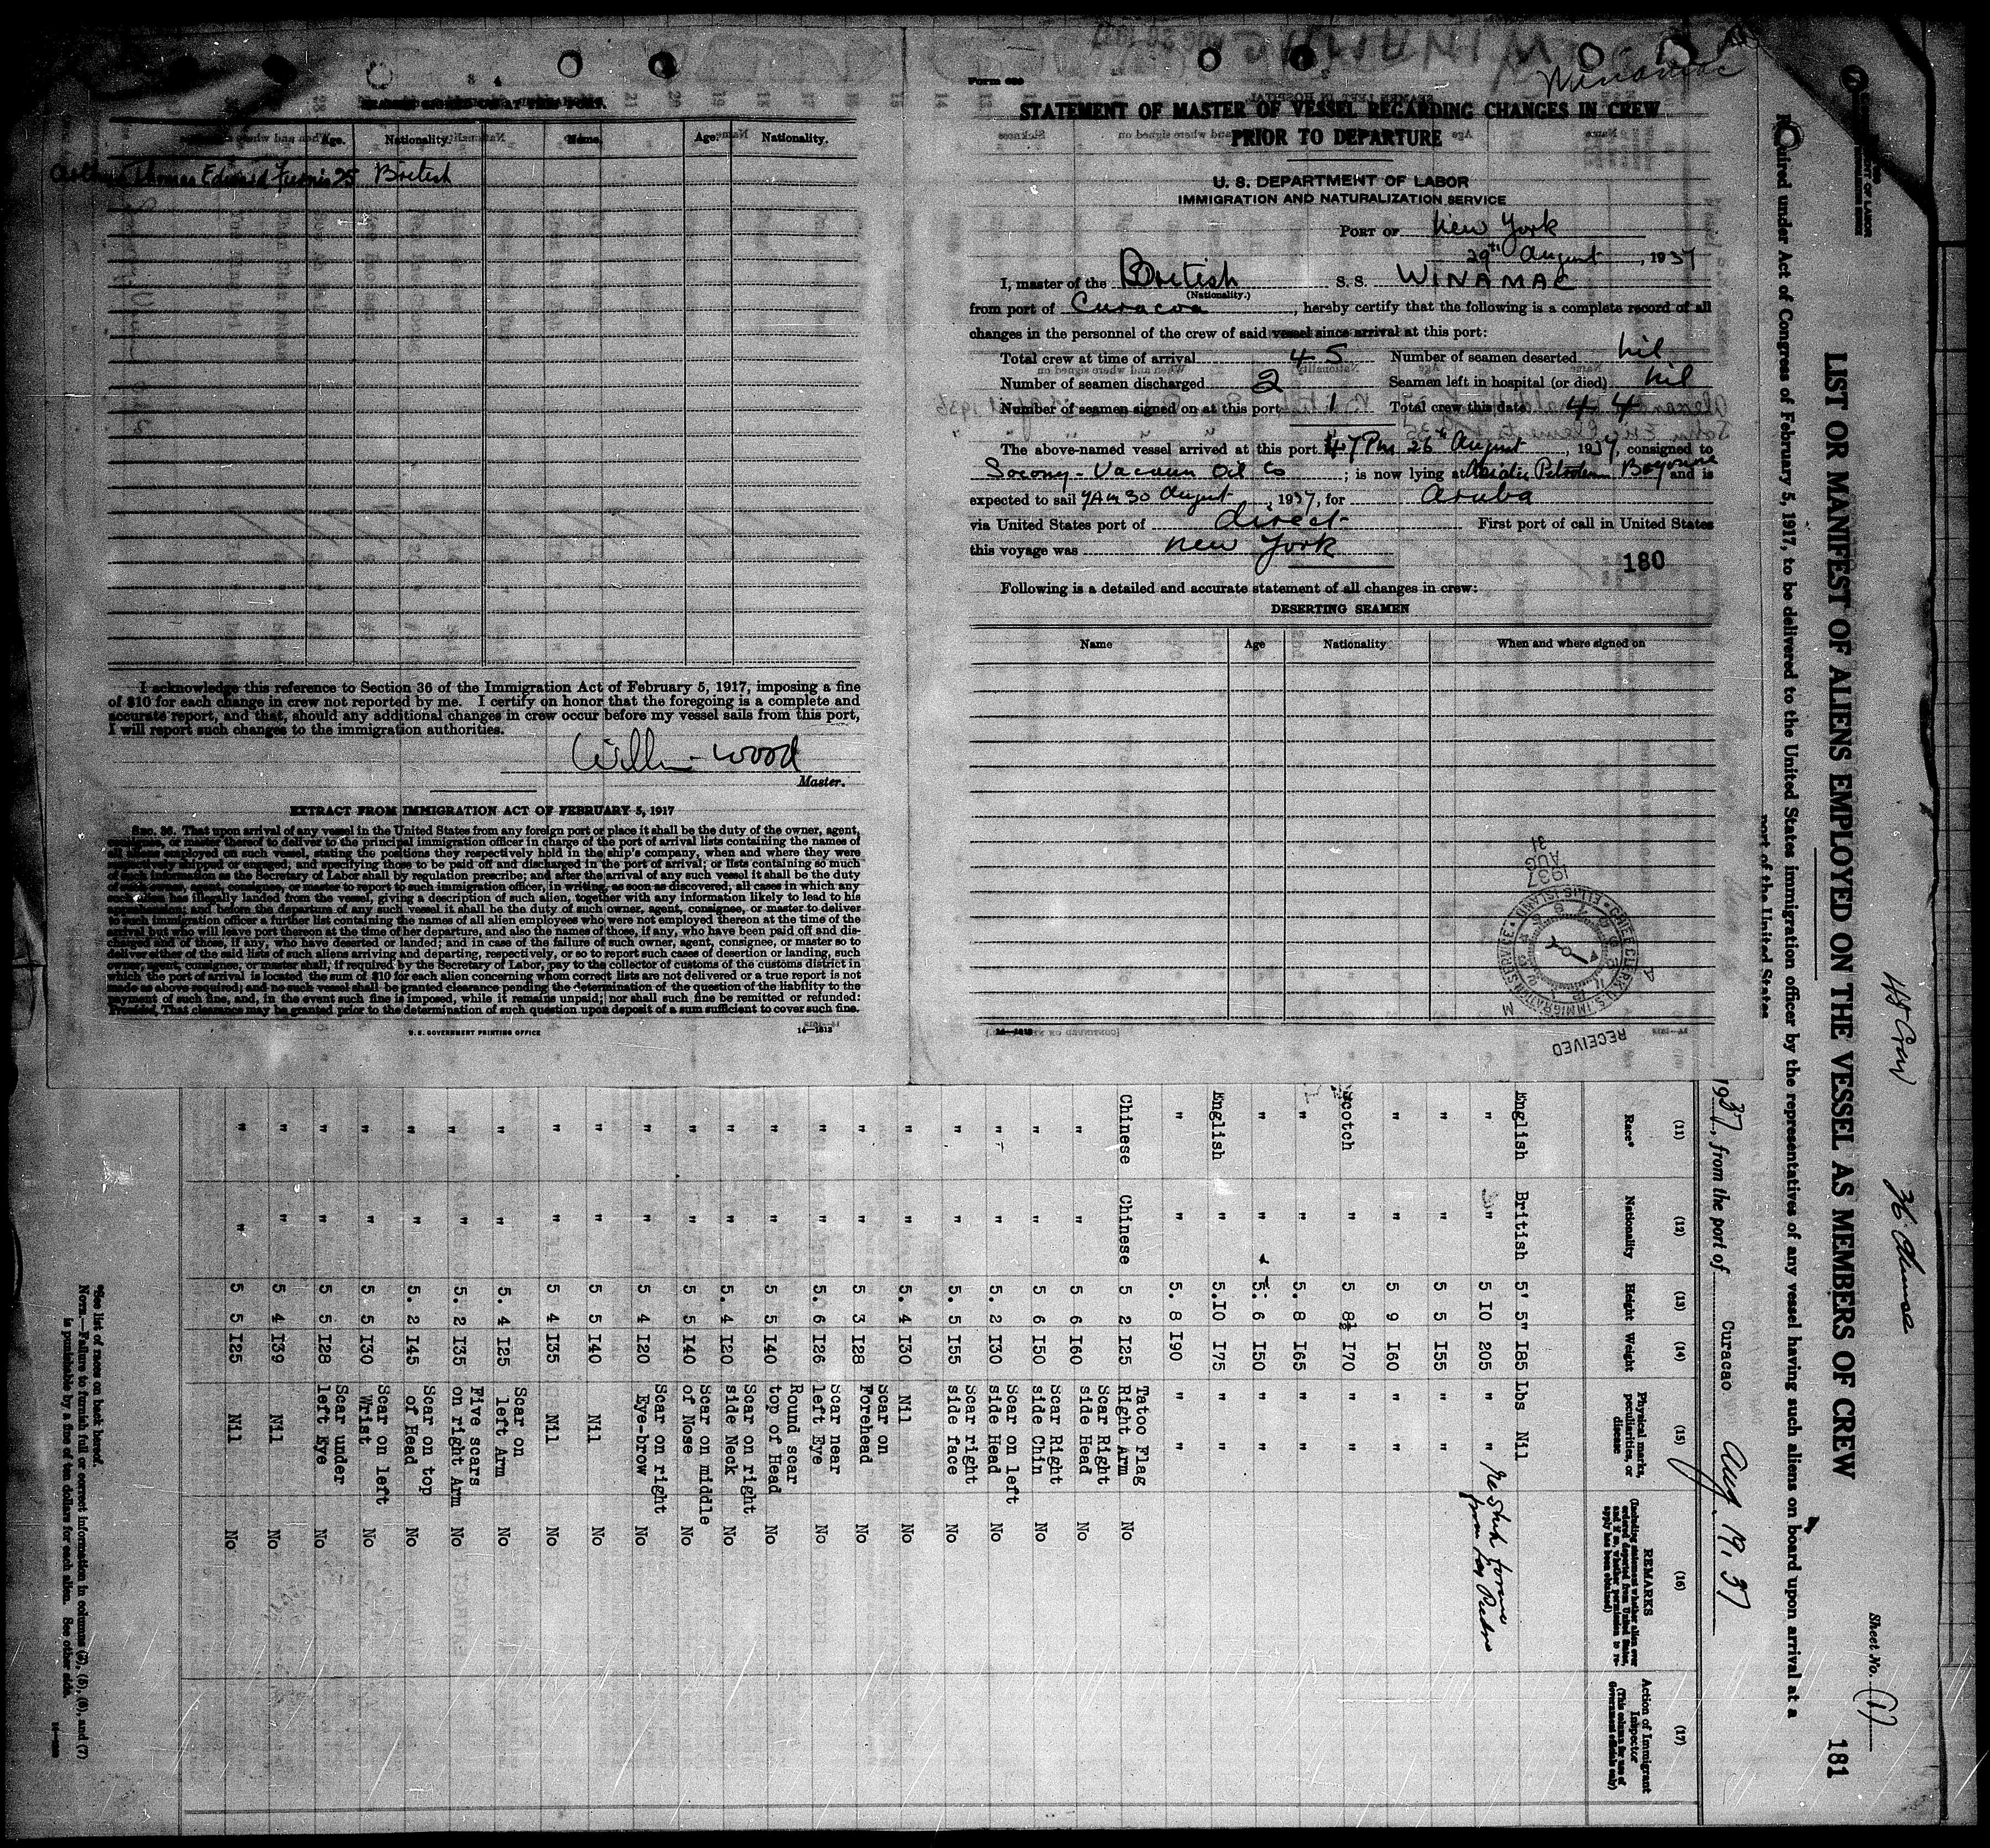 Winamac
STATEMENT OF MASTER OF VESSEL REGARDING CHANGES IN CREW
PRIOR TO DEPARTURE
U. S. DEPARTMENT OF LABOR
IMMIGRATION AND NATURALIZATION SERVICE
PORT OF New York
29th August, 1937
I, master of the British S. S. WINAMAC
(Nationality.)
from port of Curacoa, hereby certify that the following is a complete record of all
changes in the personnel of the crew of said vessel since arrival at this port:
Total crew at time of arrival 45 Number of seamen deserted nil
Number of seamen discharged 2 Seamen left in hospital (or died) nil
Number of seamen signed on at this port 1 Total crew this date 44
The above-named vessel arrived at this port 26th August, 1937, consigned to
Socony-Vacuum Oil Co; is now lying at Petroleum Bayonne and is
expected to sail 7AM 30 August, 1937, for Aruba
via United States port of direct First port of call in United States
this voyage was New York
180
Following is a detailed and accurate statement of all changes in crew:
DESERTING SEAMEN
Name Age Nationality When and where signed on
RECEIVED
1937 AUG 31
14—1813
SEAMEN SIGNED ON AT THIS PORT.
Age. Nationality. Name. Age. Nationality.
Thomas Edward 25 British
I acknowledge this reference to Section 36 of the Immigration Act of February 5, 1917, imposing a fine
of $10 for each change in crew not reported by me. I certify on honor that the foregoing is a complete and
accurate report, and that, should any additional changes in crew occur before my vessel sails from this port,
I will report such changes to the immigration authorities.
William Wood
Master.
EXTRACT FROM IMMIGRATION ACT OF FEBRUARY 5, 1917
SEC. 36. That upon arrival of any vessel in the United States from any foreign port or place it shall be the duty of the owner, agent,
consignee, or master thereof to deliver to the principal immigration officer in charge of the port of arrival lists containing the names of
all aliens employed on such vessel, stating the positions they respectively hold in the ship's company, when and where they were
respectively shipped or engaged, and specifying those to be paid off and discharged in the port of arrival; or lists containing so much
of such information as the Secretary of Labor shall by regulation prescribe; and after the arrival of any such vessel it shall be the duty
of such owner, agent, consignee, or master to report to such immigration officer, in writing, as soon as discovered, all cases in which any
such alien has illegally landed from the vessel, giving a description of such alien, together with any information likely to lead to his
apprehension; and before the departure of any such vessel it shall be the duty of such owner, agent, consignee, or master to deliver
to such immigration officer a further list containing the names of all alien employees who were not employed thereon at the time of the
arrival but who will leave port thereon at the time of her departure, and also the names of those, if any, who have been paid off and dis-
charged and of those, if any, who have deserted or landed; and in case of the failure of such owner, agent, consignee, or master so to
deliver either of the said lists of such aliens arriving and departing, respectively, or so to report such cases of desertion or landing, such
owner, agent, consignee, or master shall, if required by the Secretary of Labor, pay to the collector of customs of the customs district in
which the port of arrival is located the sum of $10 for each alien concerning whom correct lists are not delivered or a true report is not
made as above required; and no such vessel shall be granted clearance pending the determination of the question of the liability to the
payment of such fine, and, in the event such fine is imposed, while it remains unpaid; nor shall such fine be remitted or refunded:
Provided, That clearance may be granted prior to the determination of such question upon deposit of a sum sufficient to cover such fine.
U. S. GOVERNMENT PRINTING OFFICE 14—1813
45 Crew 36 Chinese
Sheet No. (1)
181
LIST OR MANIFEST OF ALIENS EMPLOYED ON THE VESSEL AS MEMBERS OF CREW
Required under Act of Congress of February 5, 1917, to be delivered to the United States immigration officer by the representatives of any vessel having such aliens on board upon arrival at a
port of the United States
1937, from the port of Curacao Aug. 19, 37
(11) (12) (13) (14) (15) (16) (17)
Race* Nationality Height Weight Physical marks, peculiarities, or disease REMARKS (Including statement whether alien ever ordered deported from United States, and if so, whether permission to re-apply has been obtained) Action of Immigrant Inspector (This column for use of Government officials only)
English British 5' 5" 185 Lbs Nil
" " 5 10 205 " "
" " 5 5 155 " "
" " 5 9 160 " "
Scotch " 5 8½ 170 " "
" " 5. 8 165 " "
" " 5. 6 150 " "
English " 5.10 175 " "
" " 5. 8 190 " "
Chinese Chinese 5 2 125 Tatoo Flag Right Arm No
" " 5 6 160 Scar Right side Head No
" " 5 6 150 Scar Right side Chin No
" " 5. 2 130 Scar on left side Head No
" " 5. 5 155 Scar right side face No
" " 5. 4 130 Nil
" " 5 3 128 Scar on Forehead No
" " 5. 6 126 Scar near left Eye No
" " 5 5 140 Round scar top of Head No
" " 5. 4 120 Scar on right side Neck No
" " 5 5 140 Scar on middle of Nose No
" " 5 4 120 Scar on right Eye-brow No
" " 5 5 140 Nil No
" " 5 4 135 Nil No
" " 5. 4 125 Scar on left Arm No
" " 5. 2 135 Five scars on right Arm No
" " 5. 2 145 Scar on top of Head No
" " 5 5 130 Scar on left Wrist No
" " 5 5 128 Scar under left Eye No
" " 5 4 139 Nil No
" " 5 5 125 Nil No
*See list of races on back hereof.
NOTE.—Failure to furnish full or correct information in columns (3), (5), (6), and (7)
is punishable by a fine of ten dollars for each alien. See other side.